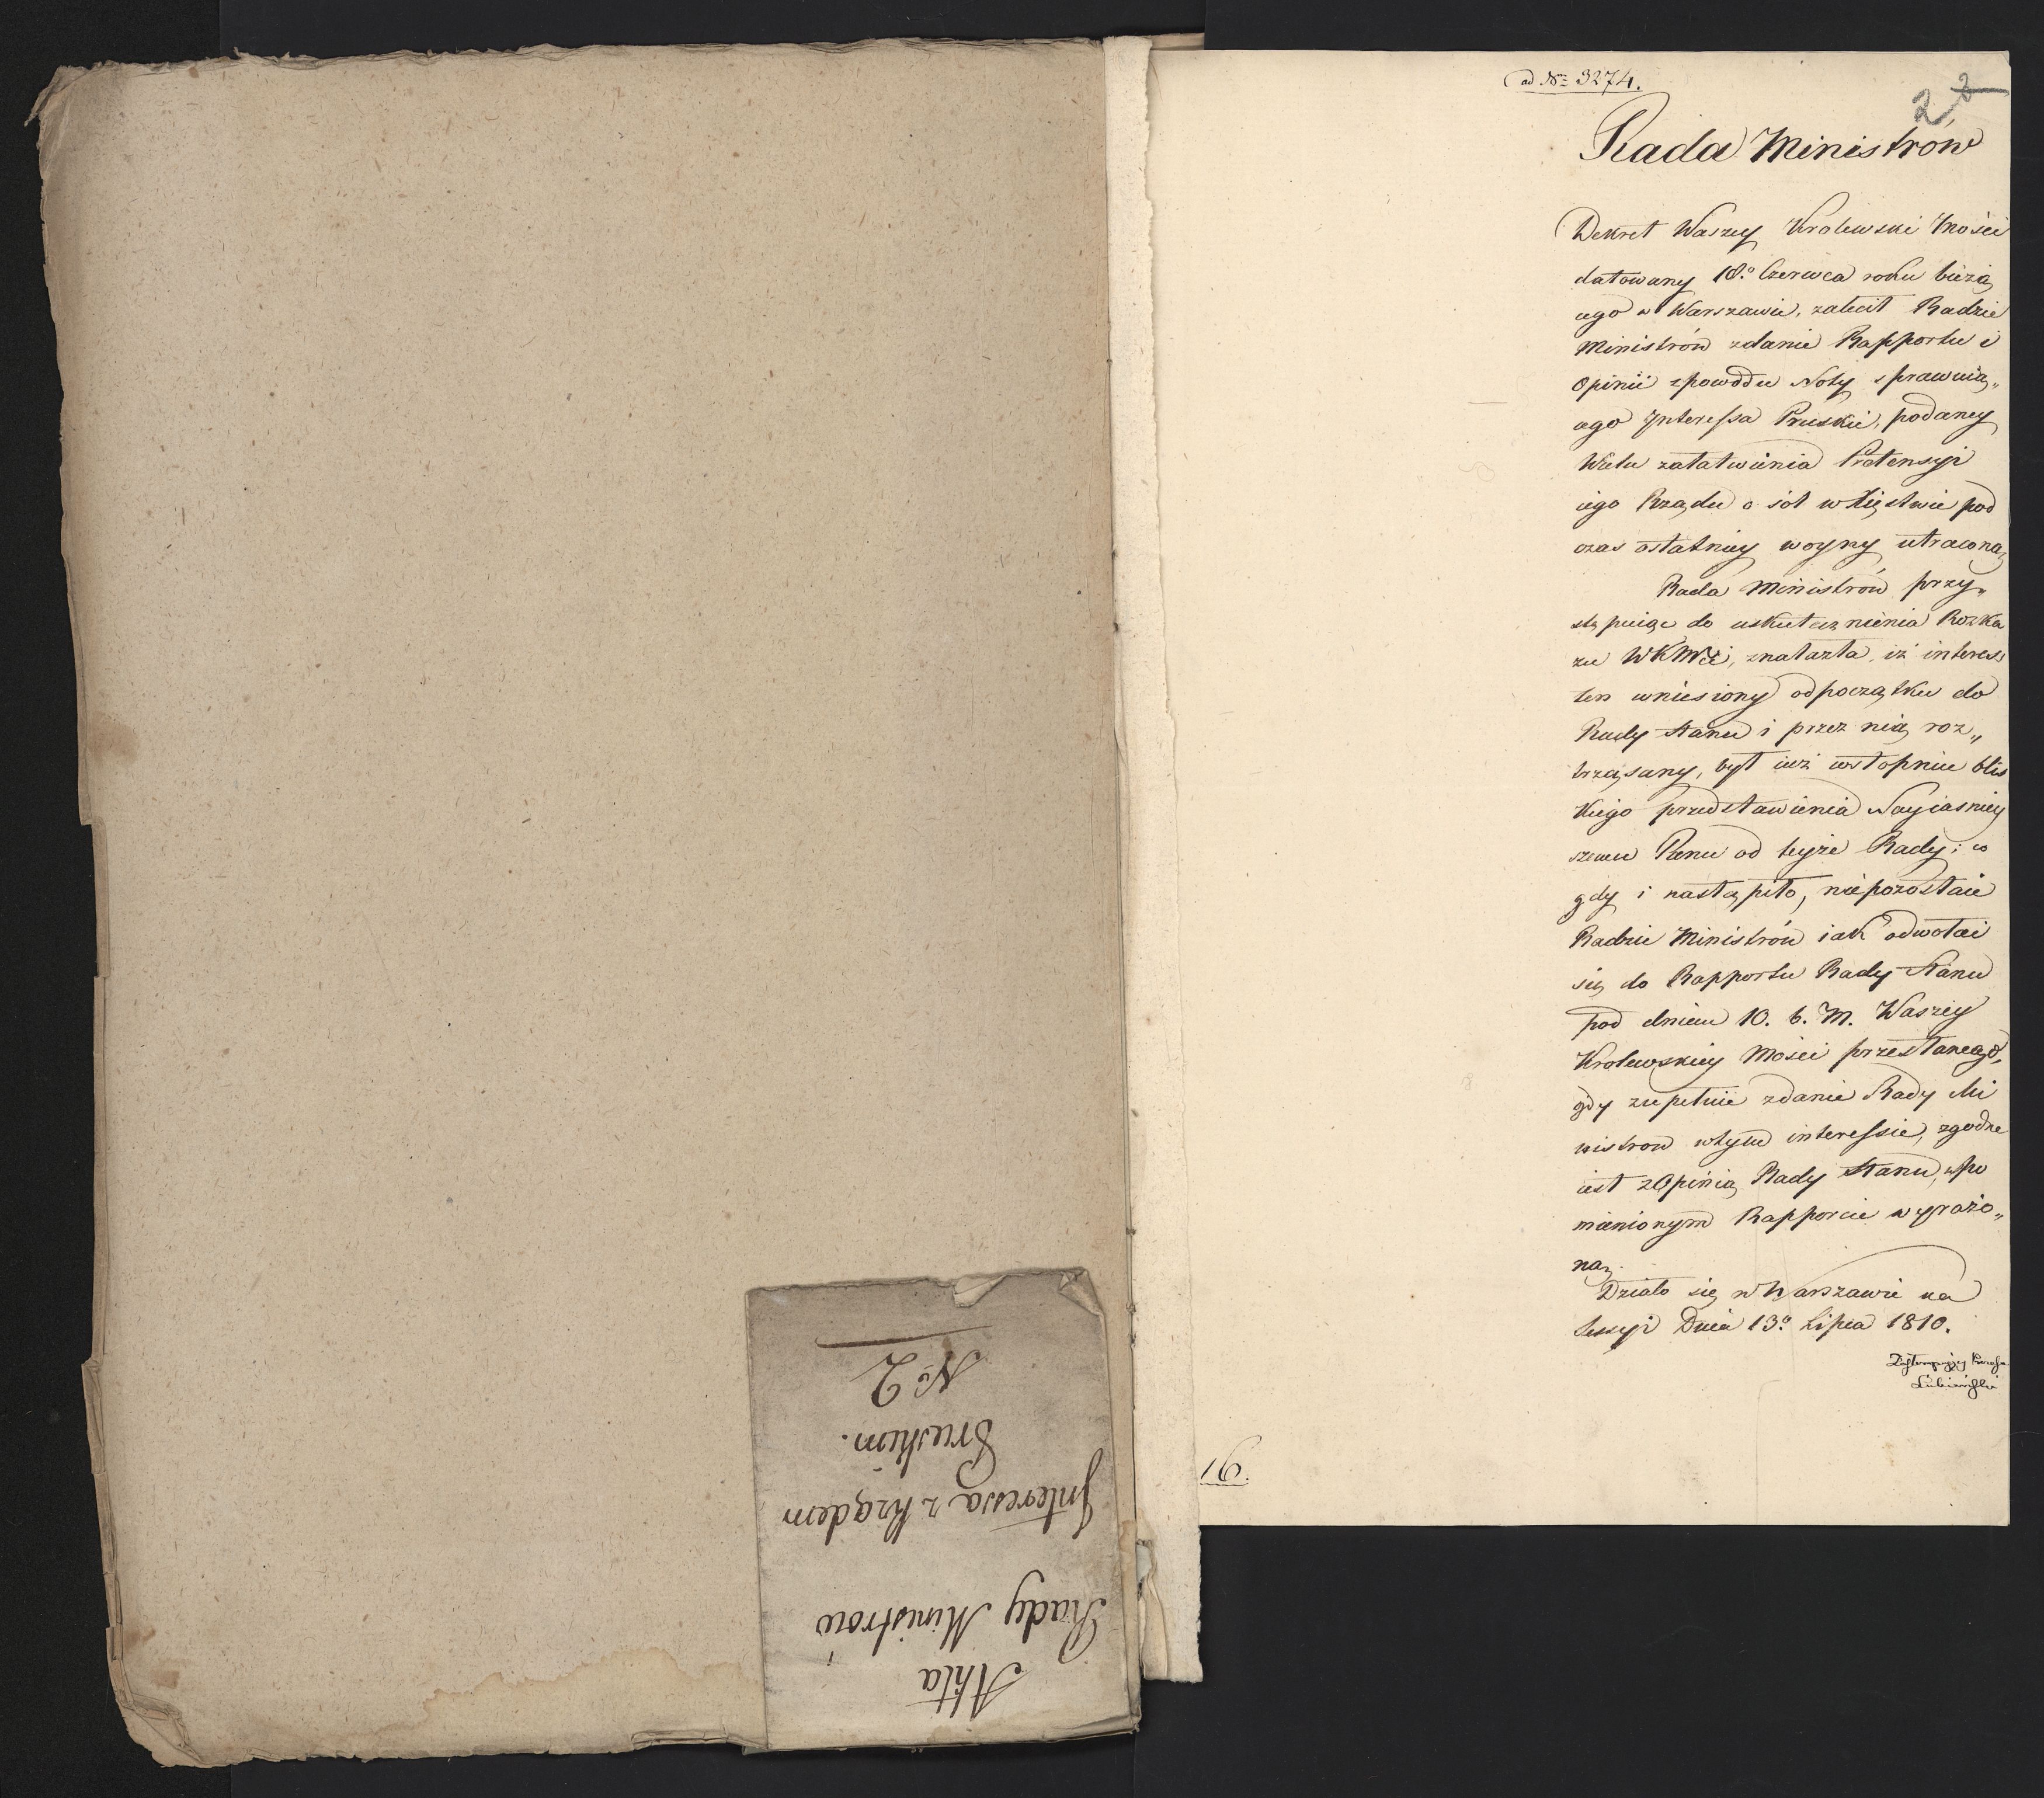 Akta
Rady Ministrow
Interessa z Rządem
Pruskim.
No 2
ad No 3274.
2 2
Rada Ministrow
Dekret Waszey Krolewski Mości
datowany 18.o Czerwca roku bieżą
cego w Warszawie, zalecił Radzie
Ministrów zdanie Rapportu i
Opinii z powodu Noty sprawuią„
cego Interessa Pruskie, podaney
Wcelu załatwienia Pretensyi
iego Rządu o sól w Xięstwie pod
czas ostatniey woyny utraconą
Rada Ministrów przy„
stępuiąc do uskutecznienia Rozka
zu WKMci, znalazła, iż interess
ten wniesiony od początku do
Rady Stanu i przez nią roz„
trząsany, był iuż wstopniu blis
kiego przedstawienia Nayiaśniey
szemu Panu od teyże Rady; co
gdy i nastąpiło, niepozostaie
Radzie Ministrów iak odwołać
się do Rapportu Rady Stanu
pod dniem 10. b. M. Waszey
Krolewskiey Mości przesłanego,
gdy zupełnie zdanie Rady Mi
nistrow wtym interessie, zgodne
iest z Opinią Rady Stanu, wspo
mnionym Rapporcie wyrażo„
ną.
Działo się w Warszawie na
Sessyi Dnia 13o Lipca 1810.
Zastempuiący Prezesa
Łubieński
16.